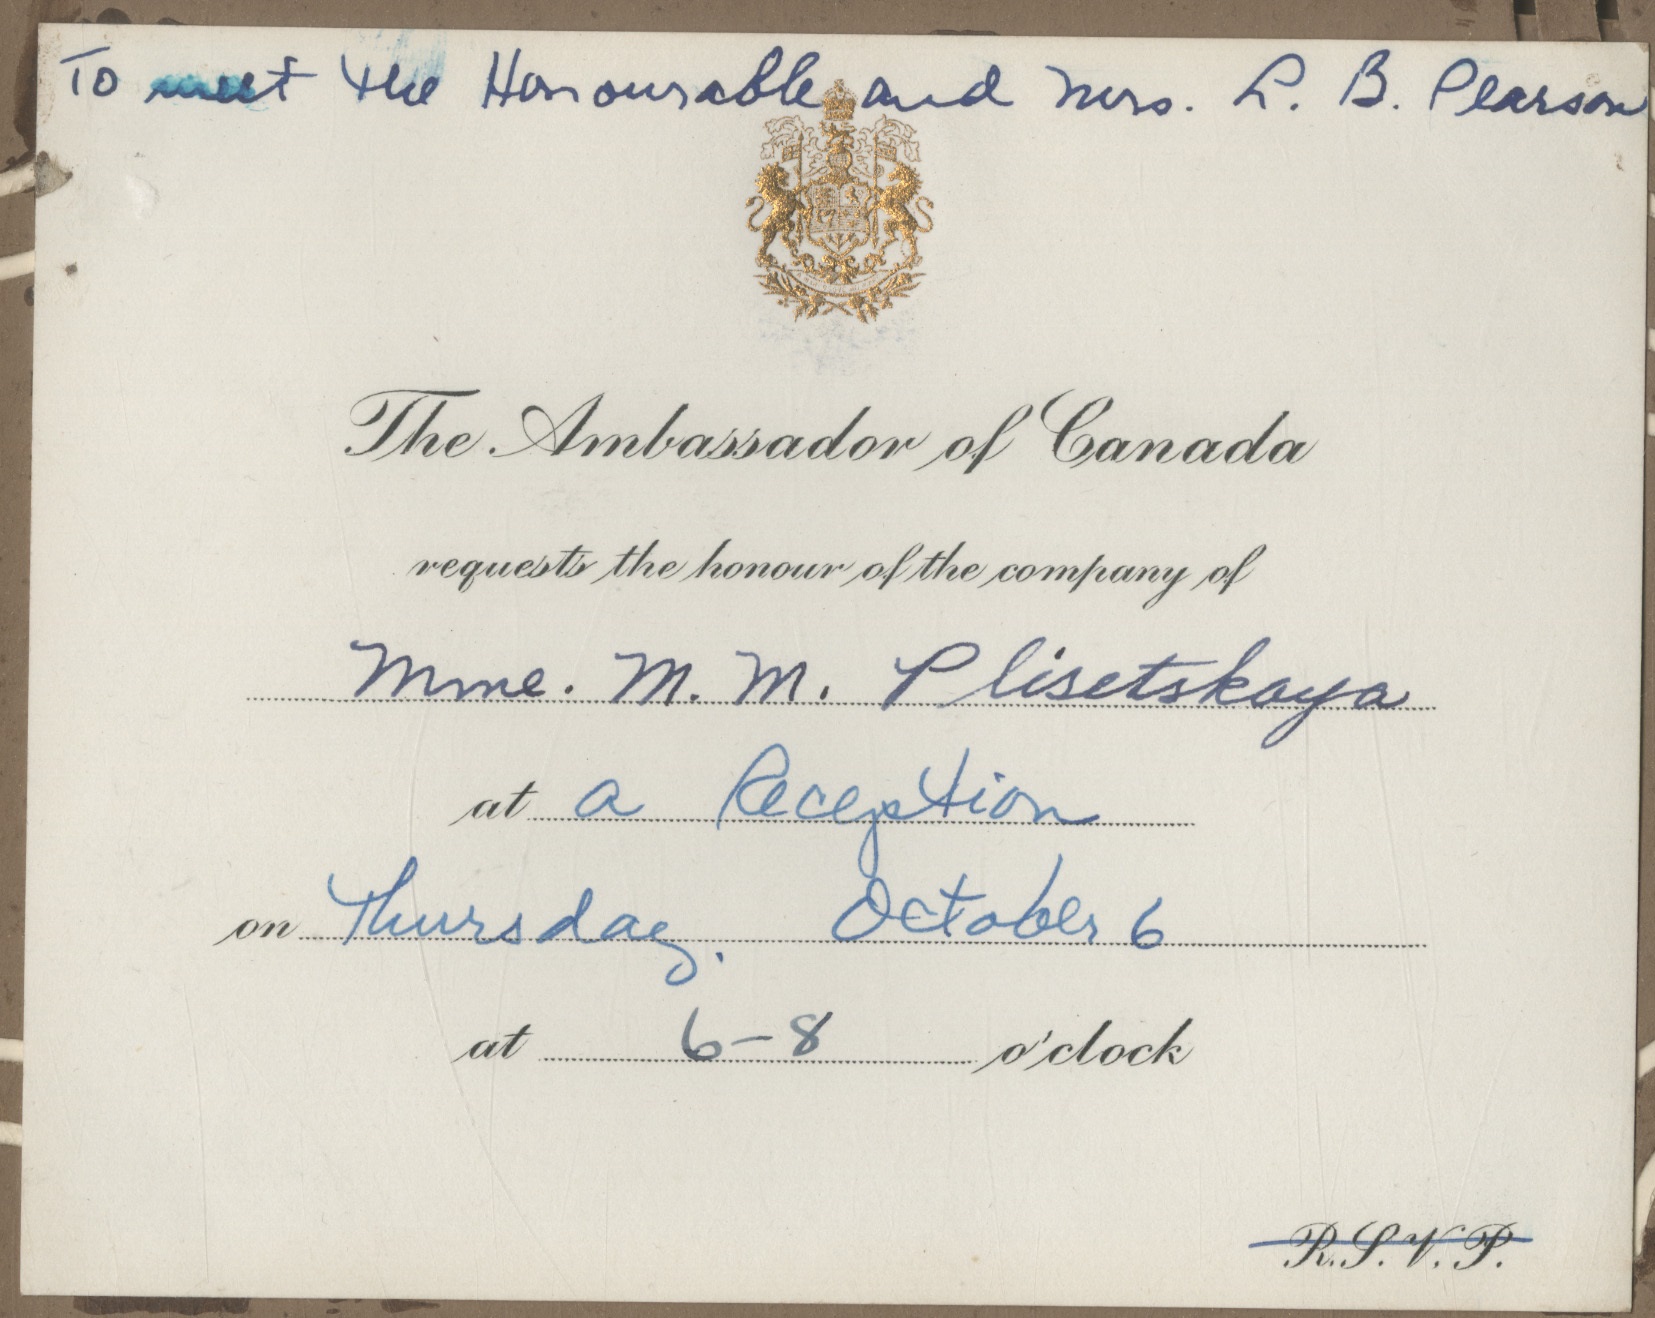 To meet the Honourable and Mrs. L. B. Pearson
The Ambassador of Canada
requests the honour of the company of
Mme. M. M. Plisetskaya
at a Reception
on Thursday, October 6
at 6-8 o'clock
R.S.V.P.